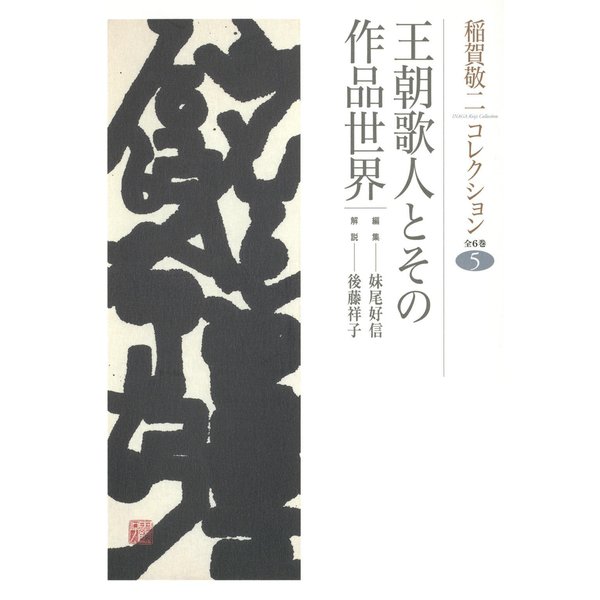 稲賀敬二コレクション
INAGA Keiji Collection
全6巻
5
王朝歌人とその
作品世界
編集──妹尾好信
解説──後藤祥子